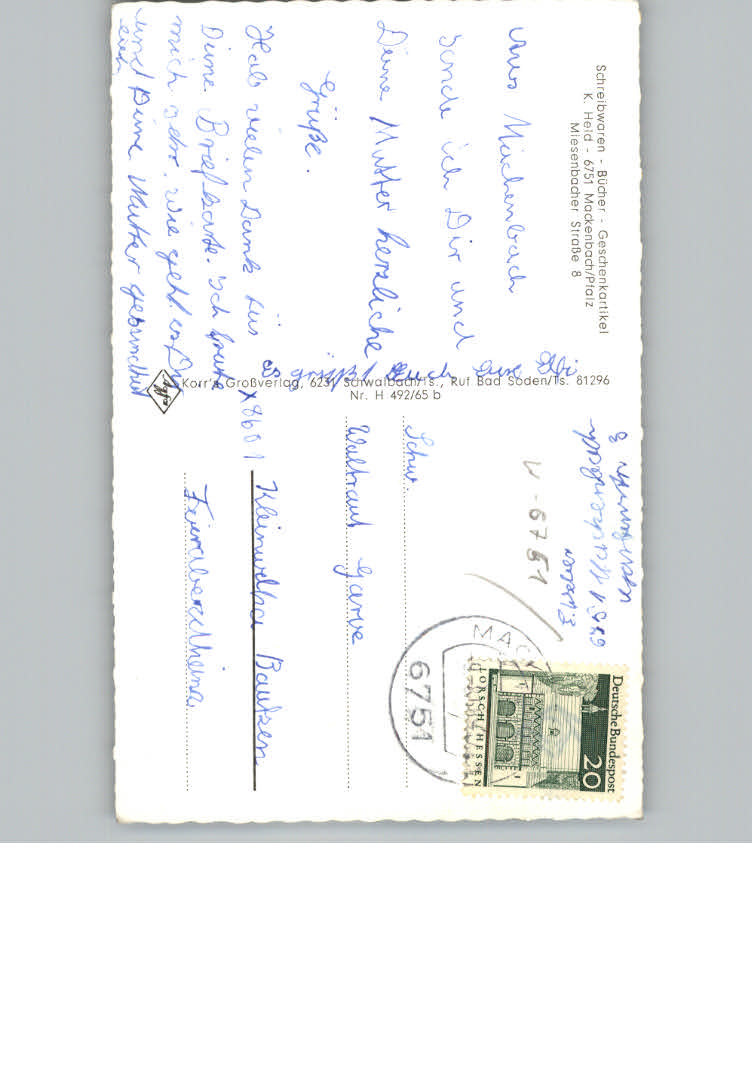 Schreibwaren - Bücher - Geschenkartikel
K. Held - 6751 Mackenbach/Pfalz
Miesenbacher Straße 8
Aus Mackenbach
sende ich Dir und
Deine Mutter herzliche
Grüße.
Hab vielen Dank für
Deine Briefkarte. Ich freute
mich sehr. Wie geht es Dir
und Deine Mutter gesundheit
lich
es grüßt Euch Eure
Korr's Großverlag, 6231 Schwalbach/Ts., Ruf Bad Soden/Ts. 81296
Nr. H 492/65 b
Agfa
6751 Mackenbach
W-6751
Deutsche Bundespost
20
LORSCH/HESSEN
MACK
6751
Schw.
Waltraut Garve
X8601 Kleinwelka Bautzen